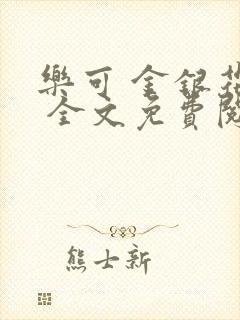 樂可 金銀花
全文免費閱
熊士新